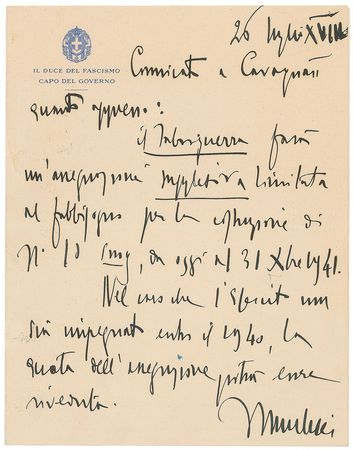 IL DUCE DEL FASCISMO
CAPO DEL GOVERNO
26 luglio XVIII
Comunicate a Cavagnari
quanto appresso:
il Fabriguerra farà
un'assegnazione suppletiva limitata
al fabbisogno per la costruzione di
n° 10 Smg, da oggi al 31 Xbre 1941.
Nel caso che l'Esercito non
sia impegnato entro il 1940, la
quota dell'assegnazione potrà essere
riveduta.
Mussolini